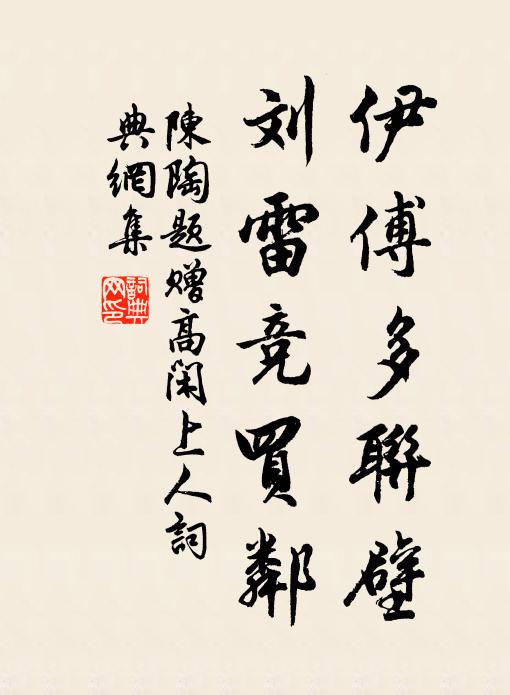 伊傅多聯壁
刘雷竞買鄰
陳陶题赠高闲上人詞
典網集
詞典
网印